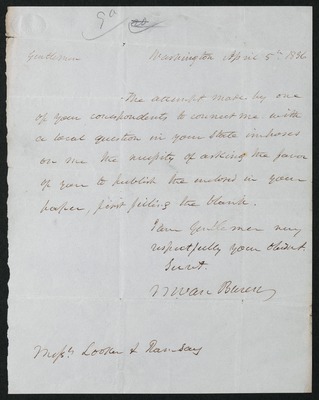 90
Gentlemen Washington April 5th 1836
The attempt made by one
of your correspondents to connect me with
a local question in your State imposes
on me the necessity of asking the favor
of you to publish the enclosed in your
paper, first filling the blank.
I am Gentlemen very
respectfully your obedient
Servt.
M Van Buren
Messrs Looker & Ramsay